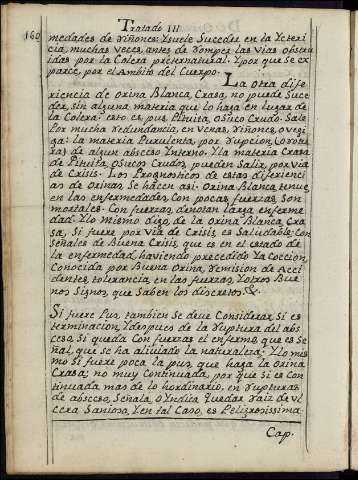 Tratado III
160
medades de riñones, Y suele Suceder en la Yeteri
cia, muchas veces, antes de romper las vias obstru
idas por la Colera preternatural. Y por que se ex
parce, por el Ambito del Cuerpo.
La otra dife
riencia de orina Blanca, Crasa, no puede Suce
der, sin alguna materia que lo haga en lugar de
la Colera: esto es, pus, Pituita, o suco Crudo. Sale
Por mucha redundancia, en venas, riñones, o vegi
ga: la materia Purulenta, por rupcion,
de algun absceso Interno. Y la materia Crasa
de Pituita, o Sucos Crudos, pueden Salir, por via
de Crisis. Los Prognosticos de estas diferienci
as de orinas Se hacen asi. Orina Blanca, tenue,
en las enfermedades, Con pocas fuerzas, Son
mortales. Con fuerzas, denotan larga enferme
dad. Y lo mismo digo, de la Orina Blanca, Cra
sa, Si fuere por via de Crisis, es Saludable: Con
señales de Buena Crisis, que es en el estado de
la enfermedad, haviendo precedido Ya Coccion,
Conocida por Buena Orina, remision de Acci
dentes, tolerancia en las fuerzas, Y otros Bue
nos Signos, que Saben los discretos. &.
Si fuere Pus, tambien Se deve Considerar, Si es
terminacion, Y despues de la ruptura del abs
ceso, Si queda Con fuerzas el enfermo, que es Se
ñal, que se ha aliviado la naturaleza: Y lo mis
mo si fuere poca la pus, que haga la orina
Crasa; no muy Continuada, por que si es con
tinuada mas de lo hordinario, en rupturas
de absceso, Señala, o Yndica quedar raiz de vl
cera Saniosa, Y en tal Caso, es Peligrosissima.
Cap.